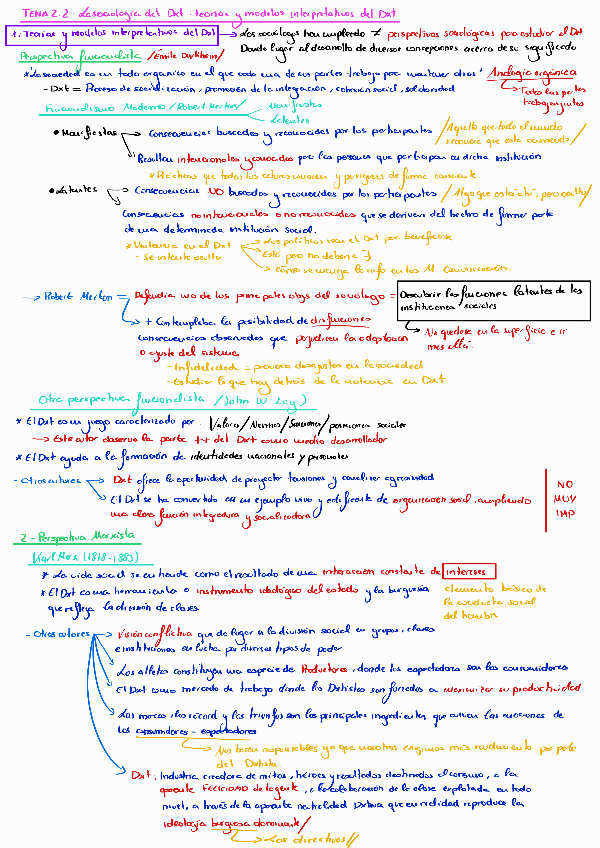 TEMA 2.2: La sociología del Dxt: teorías y modelos interpretativos del Dxt
1. Teorías y modelos interpretativos del Dxt → Los sociólogos han empleado ≠ perspectivas sociológicas para estudiar el Dxt
Dando lugar al desarrollo de diversas concepciones acerca de su significado
Perspectiva funcionalista /Émile Durkheim/
* La sociedad es un todo orgánico en el que cada una de sus partes trabaja por mantener otras / Analogía orgánica
- Dxt = Proceso de socialización, promoción de la integración, cohesión social, solidaridad
→ Todas las partes
trabajan juntas
Funcionalismo Moderno /Robert Merton/
Manifiestas
Latentes
• Manifiestas → Consecuencias buscadas y reconocidas por los participantes /Aquello que todo el mundo
reconoce que está ocurriendo/
Resultan intencionales y conocidas por las personas que participan en dicha institución
* Prácticas que todos los actores conocen y persiguen de forma consciente
• Latentes → Consecuencias NO buscadas y reconocidas por los participantes / Algo que está ahí, pero oculto/
Consecuencias no intencionales o no reconocidas que se derivan del hecho de formar parte
de una determinada institución social.
* Violencia en el Dxt
- se intenta ocultar
Los políticos usan el Dxt para beneficiarse
Está pero no debería
Cómo se maneja la info en los M. Comunicación
→ Robert Merton = Defendía uno de los principales objs del sociólogo = Descubrir las funciones latentes de las
instituciones sociales
→ No quedarse en la superficie e ir
más allá.
+ Contemplaba la posibilidad de disfunciones
consecuencias observadas que perjudican la adaptación
o ajuste del sistema
- Infidelidad = provoca desajustes en la sociedad
- Estudiar lo que hay detrás de la violencia en Dxt
Otra perspectiva funcionalista /John W. Loy/
* El Dxt es un juego caracterizado por: Valores/Normas/Sanciones/ posiciones sociales
→ Este autor observa la parte ++ del Dxt como medio desarrollador
* El Dxt ayuda a la formación de identidades nacionales y personales
- Otros autores → Dxt ofrece la oportunidad de proyectar tensiones y canalizar agresividad
El Dxt se ha convertido en un ejemplo vivo y edificante de organización social, cumpliendo
una clara función integradora y socializadora
NO
MUY
IMP
2.- Perspectiva Marxista
Karl Marx (1818-1883)
* La vida social se entiende como el resultado de una interacción constante de intereses
* El Dxt es una herramienta o instrumento ideológico del estado y la burguesía
que refleja la división de clases
elemento básico de
la conducta social
del hombre
- Otros autores
Visión conflictiva que da lugar a la división social en grupos, clases
e instituciones en lucha por diversos tipos de poder
Los atletas constituyen una especie de Productores, donde los espectadores son los consumidores
El Dxt como mercado de trabajo donde los Dxtistas son forzados a maximizar su productividad
Las marcas, los récord y los triunfos son los principales ingredientes que avivan las emociones de
los consumidores - espectadores
→ Nos hacen responsables ya que nosotros exigimos más rendimiento por parte
del Dxtista.
Dxt: Industria creadora de mitos, héroes y resultados destinados al consumo, a la
aparente FELICIDAD de la gente, a la colaboración de la clase explotada en todo
nivel, a través de la aparente neutralidad Dxtiva que en realidad reproduce la
ideología burguesa dominante/
→ Los directivos//